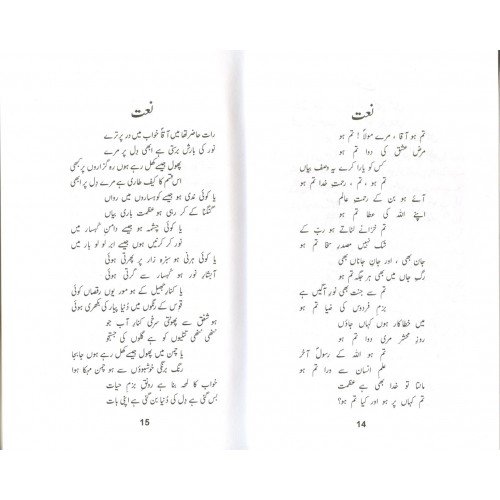 نعت
تم ہو آقا، مرے مولا! تم ہو
مرضِ عشق کی دوا تم ہو
کس کو یارا کرے یہ وصف بیاں
تم ہو، تم، رحمتِ خدا تم ہو
آئے ہو بن کے رحمتِ عالم
اپنے اللہ کی عطا تم ہو
تم خزانے لٹاتے ہو رب کے
شک نہیں مصدرِ سخا تم ہو
جان بھی، اور جانِ جاناں بھی
رگِ جاں میں بھی ہر جگہ تم ہو
تم سے جنت بھی نور آگیں ہے
بزمِ فردوس کی ضیا تم ہو
میں خطاکار ہوں کہاں جاؤں
روزِ محشر مری دوا تم ہو
تم ہو اللہ کے رسولِ آخر
علمِ انساں سے ورا تم ہو
مانا تو خدا بھی ہے عظمت
تم کہاں پر ہو اور کیا تم ہو؟
14
نعت
رات حاضر تھا میں آقا خواب میں در پر ترے
نور کی بارش برستی ہے ابھی دل پر مرے
پھول جیسے کھل رہے ہوں رہ گزاروں پر کبھی
اس قسم کا کیف طاری ہے مرے دل پر ابھی
یا کوئی ندی ہو جیسے کوہساروں میں رواں
گنگنا کے کر رہی ہو عظمت باری بیاں
یا کوئی چشمہ ہو جیسے دامنِ کہسار میں
نور کر کرنیں ہوں جیسے ابر لو لو بار میں
یا کوئی ہرنی ہو سبزہ زار پر پھرتی ہوئی
آبشارِ نور ہو کہسار سے گرتی ہوئی
یا کنارِ جھیل کے ہو مور یوں رقصاں کوئی
قوس کے رنگوں میں دنیا پیار کی نکھری ہوئی
ہو شفق سے پھوٹتی سرخی کنارِ آب جو
ننھی ننھی تتلیوں کو ہے گلوں کی جستجو
یا چمن میں پھول جیسے کھل رہے ہوں جابجا
رنگ برنگی خوشبوؤں سے ہو چمن مہکا ہوا
خواب کا لمحہ بنا ہے رونقِ بزمِ حیات
بس گئی ہے دل کی دنیا بن گئی ہے اپنی بات
15